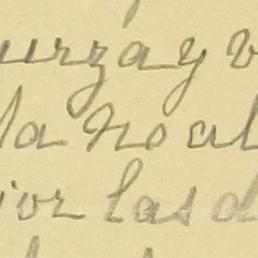 urzay v
la no al
ior las d